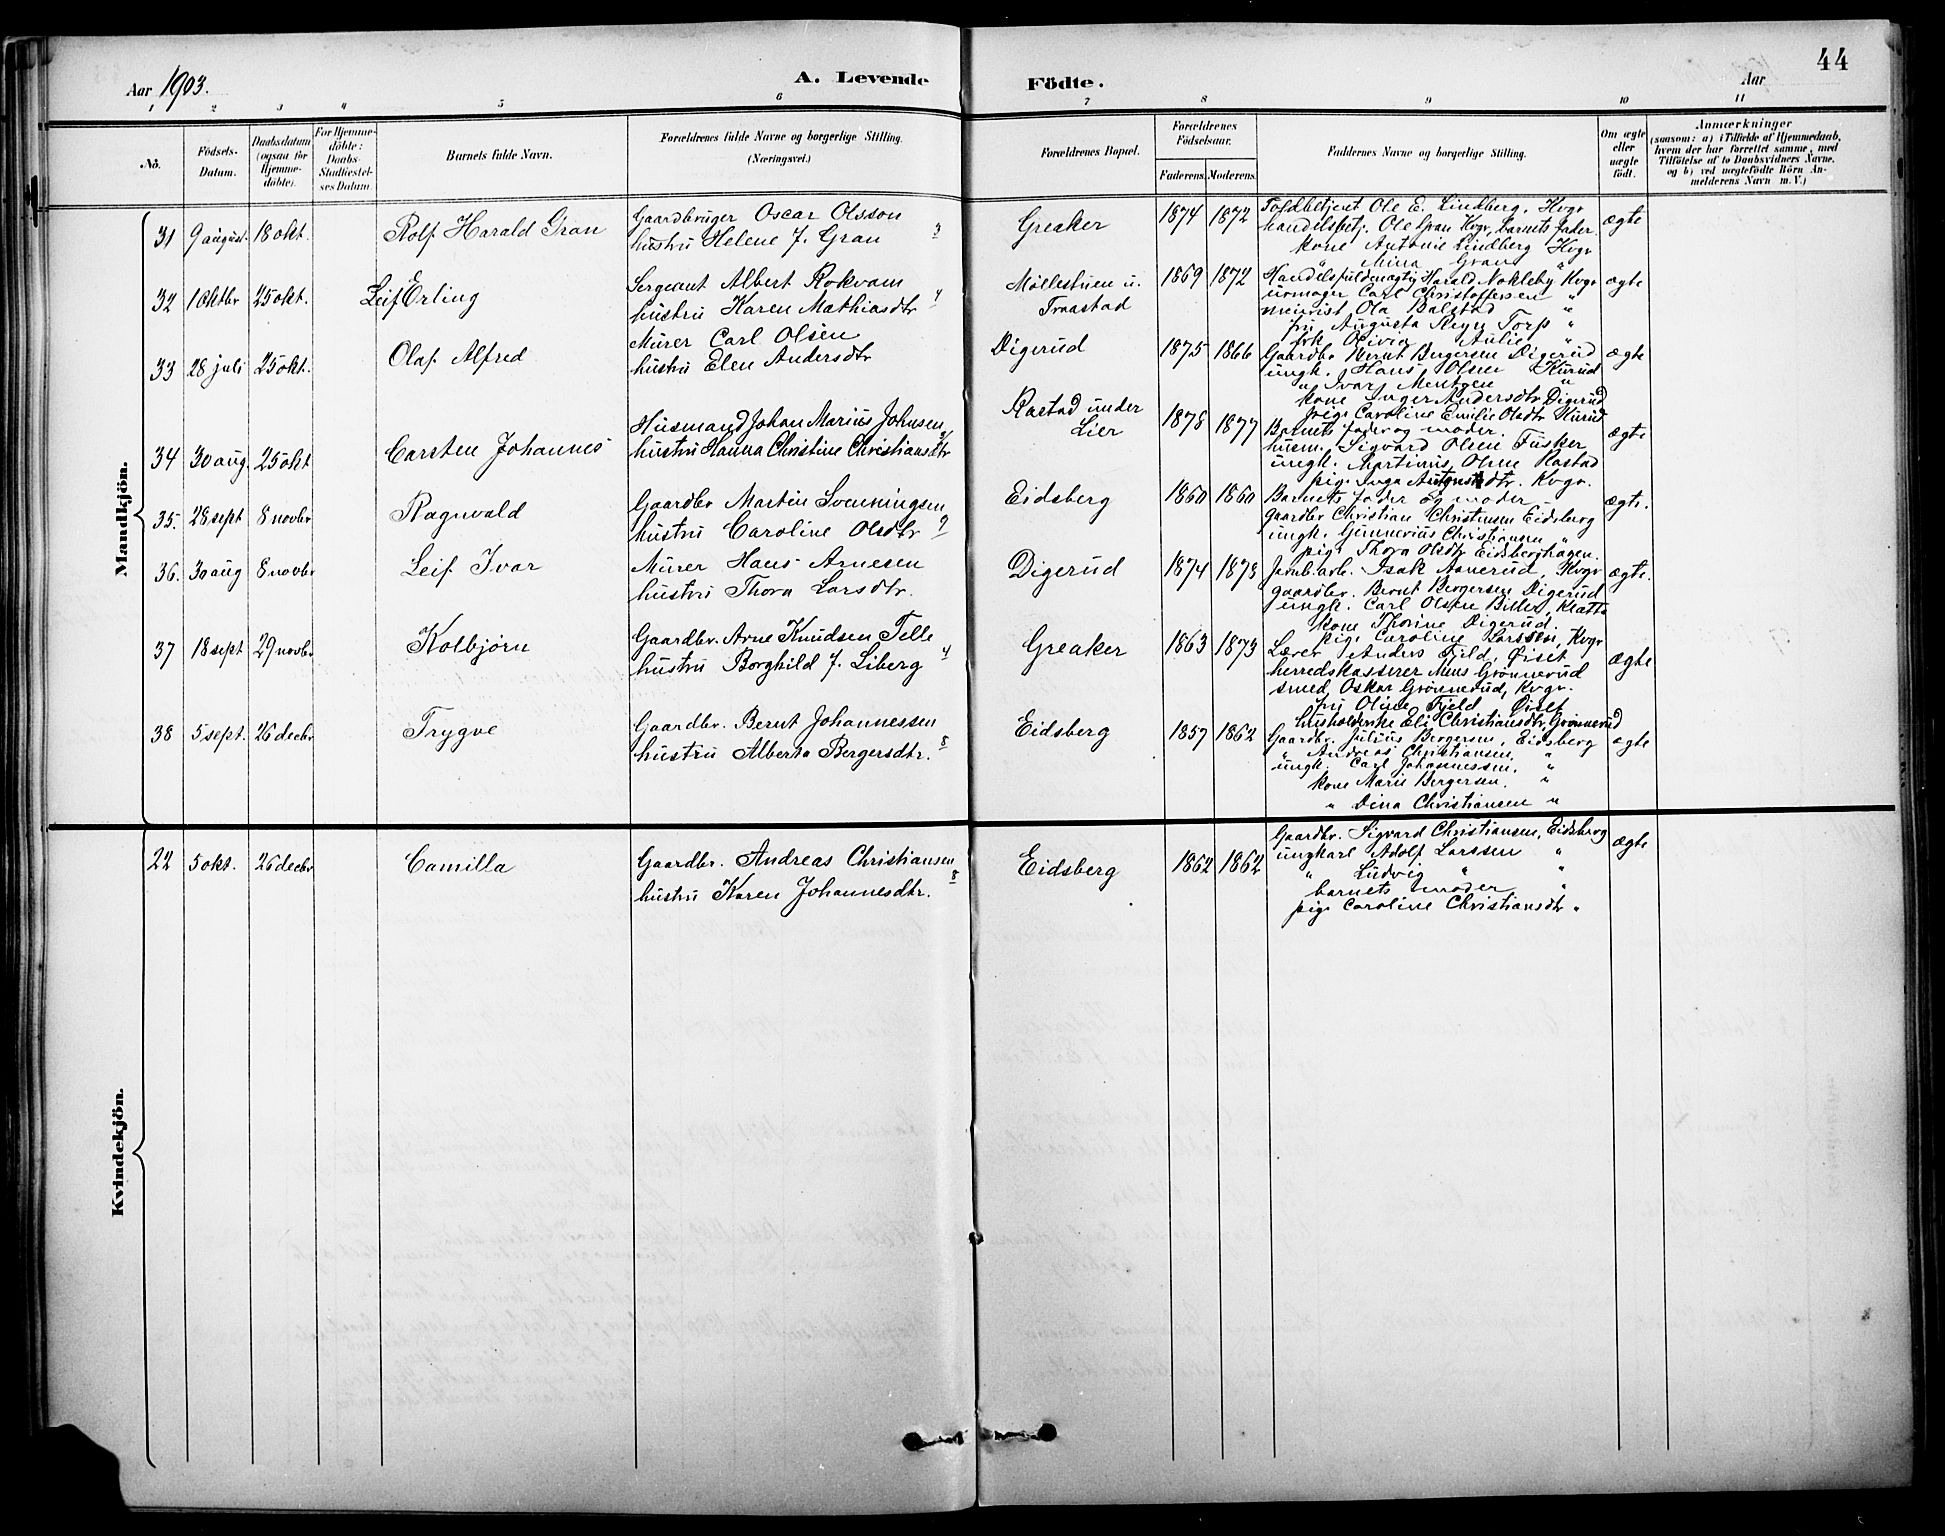 Aar 1903.
A. Levende
Födte.
Aar
44
1 2 3 4 5 6 7 8 9 10 11
No.
Födsels-
Datum.
Daabsdatum
(ogsaa for
Hjemme-
döbte).
For Hjemme-
döbte:
Daabs-
Stadfæstel-
ses Datum.
Barnets fulde Navn.
Forældrenes fulde Navne og borgerlige Stilling.
(Næringsvei.)
Forældrenes Bopæl.
Forældrenes
Födselsaar.
Faderens. Moderens.
Faddernes Navne og borgerlige Stilling.
Om ægte
eller
uægte
født.
Anmærkninger
(saasom: a) i Tilfælde af Hjemmedaab,
hvem der har forrettet samme, med
Tilföielse af to Daabsvidners Navne,
og b) ved uægtefödte Börn An-
melderens Navn m. V.)
Mandkjön.
31 9 august 18 okt. Rolf Harald Gran
Gaardbruger Oscar Olsson
hustru Helene J. Gran 3
Greaker 1874 1872
Toldbetjent Ole E. Lindberg, Kvgr
handelsbetj. Ole Gran Kvgr, barnets fader
kone Antonie Lindberg Kvgr
" Mina Gran "
ægte
32 1 oktbr 25 okt. Leif Erling
Sergeant Albert Rokvam
hustru Karen Mathiasdtr 4
Møllestuen u.
Traastad
1869 1872
Handelsfuldmægtig Harald Nokleby Kvgr
urmager Carl Christoffersen "
meierist Ola Balstad "
fru Augusta Reyn Torp "
frk Olivia Aulie "
ægte
33 28 juli 25 okt. Olaf Alfred
Murer Carl Olsen
hustru Elen Andersdtr
Digerud 1875 1866
Gaardbr Bernt Bergersen Digerud
ungk. Hans Olsen Kurud
" Ivar Mentzen "
kone Inger Andersdtr Digerud
pige Caroline Emilie Olsdtr Kurud
ægte
34 30 aug. 25 okt Carsten Johannes
Husmand Johan Marius Johnsen
hustru Hanna Christine Christiansdtr
Rastad under
Lier
1878 1877
Barnets fader og moder
husm. Sigvard Olsen Fusker
ungk. Martinius Olsen Rastad
pige Inga Antonsdtr. Kvgr.
ægte
35. 28 sept 8 novbr Ragnvald
Gaardbr Martin Svenningsen
hustru Caroline Olsdtr 9
Eidsberg 1860 1860
Barnets fader og moder
gaardbr Christian Christensen Eidsberg
ungk. Gunnerius Christiansen "
pige Thora Olsdtr Eidsberghagen.
ægte.
36. 30 aug 8 novbr Leif Ivar
Murer Hans Arnesen
hustru Thora Larsdtr.
Digerud 1874 1878
Jernb.arb. Isak Aanerud, Kvgr
gaardbr. Bernt Bergersen Digerud
ungk. Carl Olsen Billes Kratts
kone Thorine Digerud.
pige Caroline Larssen, Kvgr
ægte.
37 18 sept 29 novbr Kolbjørn
Gaardbr. Arne Knudsen Telle
hustru Borghild J. Liberg 4
Greaker 1863 1873
Lærer Anders Fjeld, Øiset
herredskasserer Mens Grønnerud
smed Oskar Grønnerud, Kvgr.
fru Oline Fjeld Øiset
husholderske Eli Christiansdtr Grønnerud
ægte
38 5 sept. 26 decbr Trygve
Gaardbr. Bernt Johannessen
hustru Alberta Bergersdtr. 8
Eidsberg 1857 1862
Gaardbr. Julius Bergersen, Eidsberg
" Andreas Christiansen, "
ungk. Carl Johannessen, "
kone Marie Bergersen. "
" Dina Christiansen "
ægte
Kvindekjön.
22 5 okt. 26 decbr Camilla
Gaardbr. Andreas Christiansen
hustru Karen Johannesdtr. 8
Eidsberg 1862 1862
Gaardbr. Sigvard Christiansen, Eidsberg
ungkarl Adolf Larssen "
" Ludvig " "
barnets moder "
pige Caroline Christiansdtr "
ægte